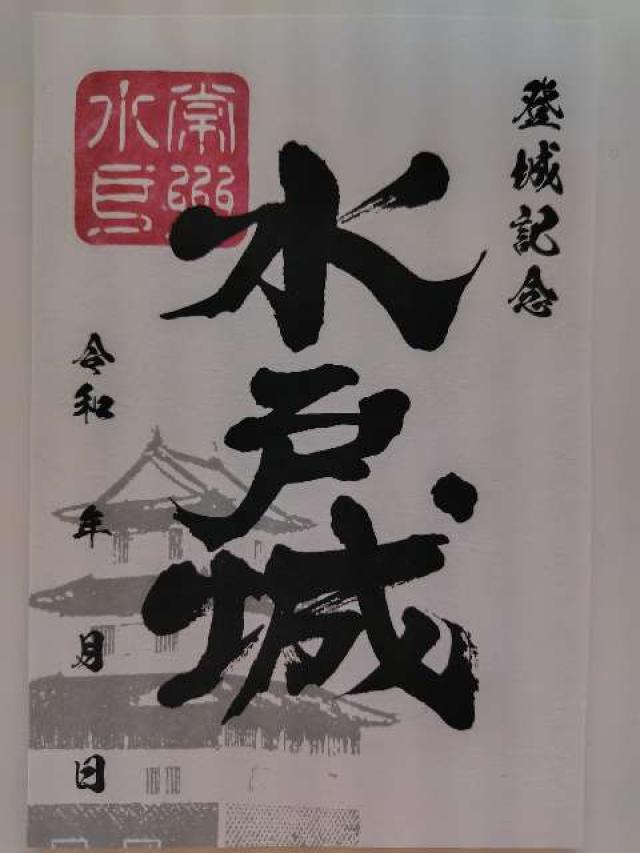 登城記念
水戸城
常州
水戸
令和 年 月 日